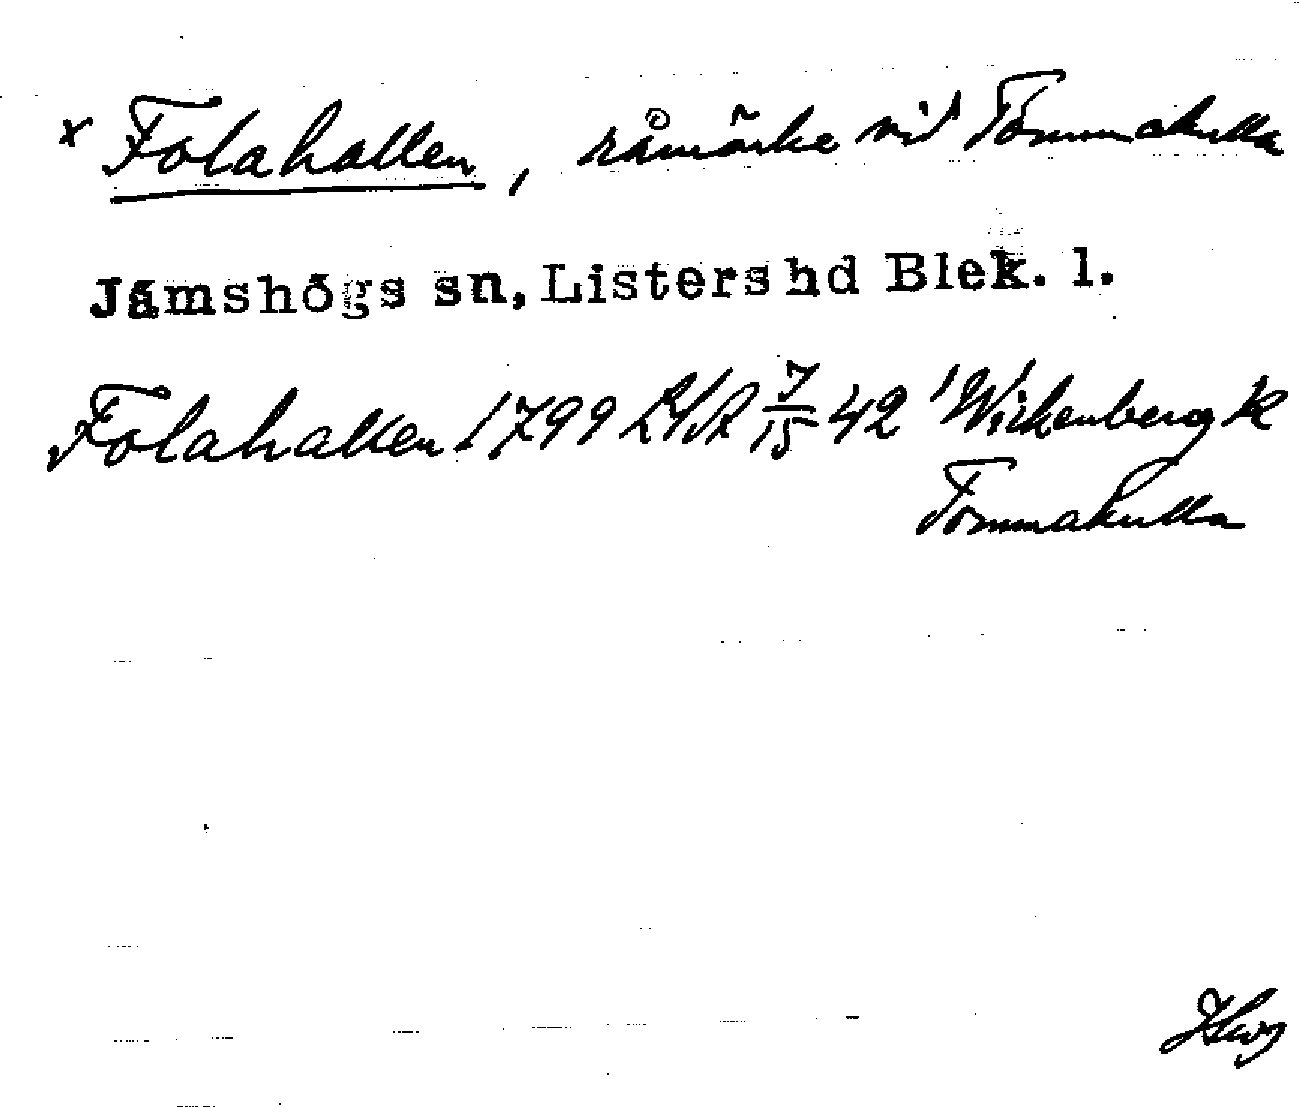 x Folahallen, råmärke vid Tommakulla
Jämshögs sn, Listers hd Blek. l.
Folahallen 1799 LSA 7/15 42 Wickenberg k
Tommakulla